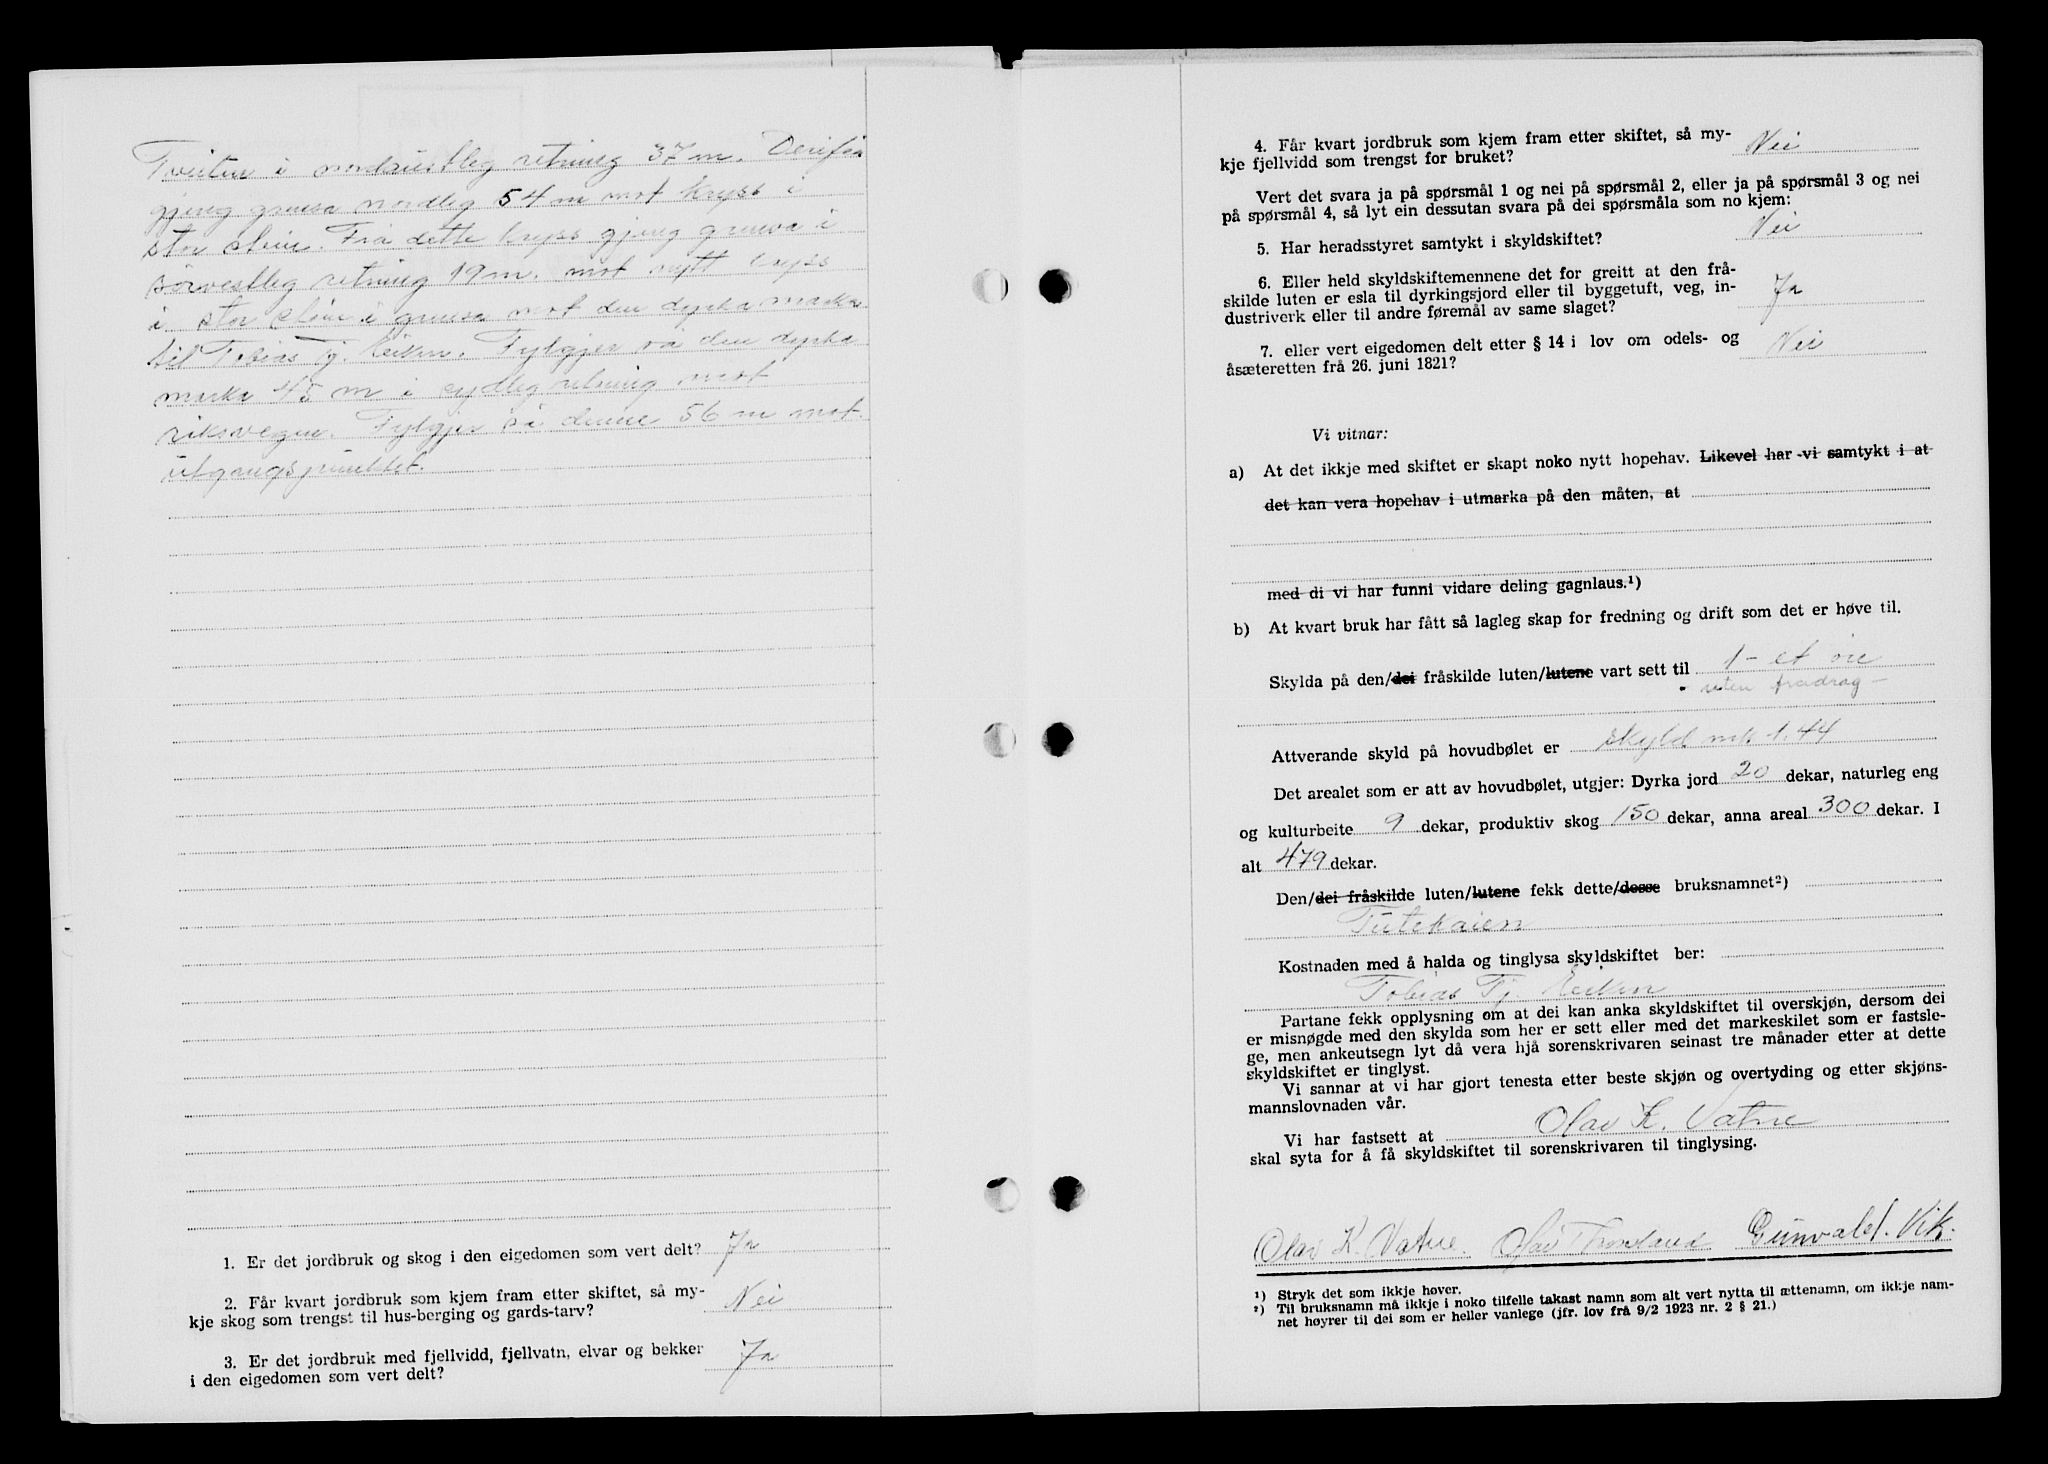 Tveiten i nordaustleg retning 37 m. Derifra
gjeng grensa nordleg 54 m mot kryss i
stor stein. Frå dette kryss gjeng grensa i
sørvestleg retning 19 m. mot nytt kryss
i stor stein i grensa mot den dyrka marka
til Tobias Tj. Eiken. Fylgjer så den dyrka
marka 45 m i sydleg retning mot
riksvegen. Fylgjer så denne 56 m mot
utgangspunktet.
1. Er det jordbruk og skog i den eigedomen som vert delt? Ja
2. Får kvart jordbruk som kjem fram etter skiftet, så my-
kje skog som trengst til hus-berging og gards-tarv? Nei
3. Er det jordbruk med fjellvidd, fjellvatn, elvar og bekker
i den eigedomen som vert delt? Ja
4. Får kvart jordbruk som kjem fram etter skiftet, så my-
kje fjellvidd som trengst for bruket? Nei
Vert det svara ja på spørsmål 1 og nei på spørsmål 2, eller ja på spørsmål 3 og nei
på spørsmål 4, så lyt ein dessutan svara på dei spørsmåla som no kjem:
5. Har heradsstyret samtykt i skyldskiftet? Nei
6. Eller held skyldskiftemennene det for greitt at den frå-
skilde luten er esla til dyrkingsjord eller til byggetuft, veg, in-
dustriverk eller til andre føremål av same slaget? Ja
7. eller vert eigedomen delt etter § 14 i lov om odels- og
åsæteretten frå 26. juni 1821? Nei
Vi vitnar:
a) At det ikkje med skiftet er skapt noko nytt hopehav. Likevel har vi samtykt i at
det kan vera hopehav i utmarka på den måten, at
med di vi har funni vidare deling gagnlaus.¹)
b) At kvart bruk har fått så lagleg skap for fredning og drift som det er høve til.
Skylda på den/dei fråskilde luten/lutene vart sett til 1 - et øre
- uten fradrag -
Attverande skyld på hovudbølet er skyld mk 1.44
Det arealet som er att av hovudbølet, utgjer: Dyrka jord 20 dekar, naturleg eng
og kulturbeite 9 dekar, produktiv skog 150 dekar, anna areal 300 dekar. I
alt 479 dekar.
Den/dei fråskilde luten/lutene fekk dette/desse bruksnamnet²)
Tutekaien
Kostnaden med å halda og tinglysa skyldskiftet ber:
Tobias Tj. Eiken
Partane fekk opplysning om at dei kan anka skyldskiftet til overskjøn, dersom dei
er misnøgde med den skylda som her er sett eller med det markeskilet som er fastsle-
ge, men ankeutsegn lyt då vera hjå sorenskrivaren seinast tre månader etter at dette
skyldskiftet er tinglyst.
Vi sannar at vi har gjort tenesta etter beste skjøn og overtyding og etter skjøns-
mannslovnaden vår.
Vi har fastsett at Olav K. Vatne
skal syta for å få skyldskiftet til sorenskrivaren til tinglysing.
Olav K. Vatne. Olav Thorsland Gunvald. Vik.
¹) Stryk det som ikkje høver.
²) Til bruksnamn må ikkje i noko tilfelle takast namn som alt vert nytta til ættenamn, om ikkje nam-
net høyrer til dei som er heller vanlege (jfr. lov frå 9/2 1923 nr. 2 § 21.)